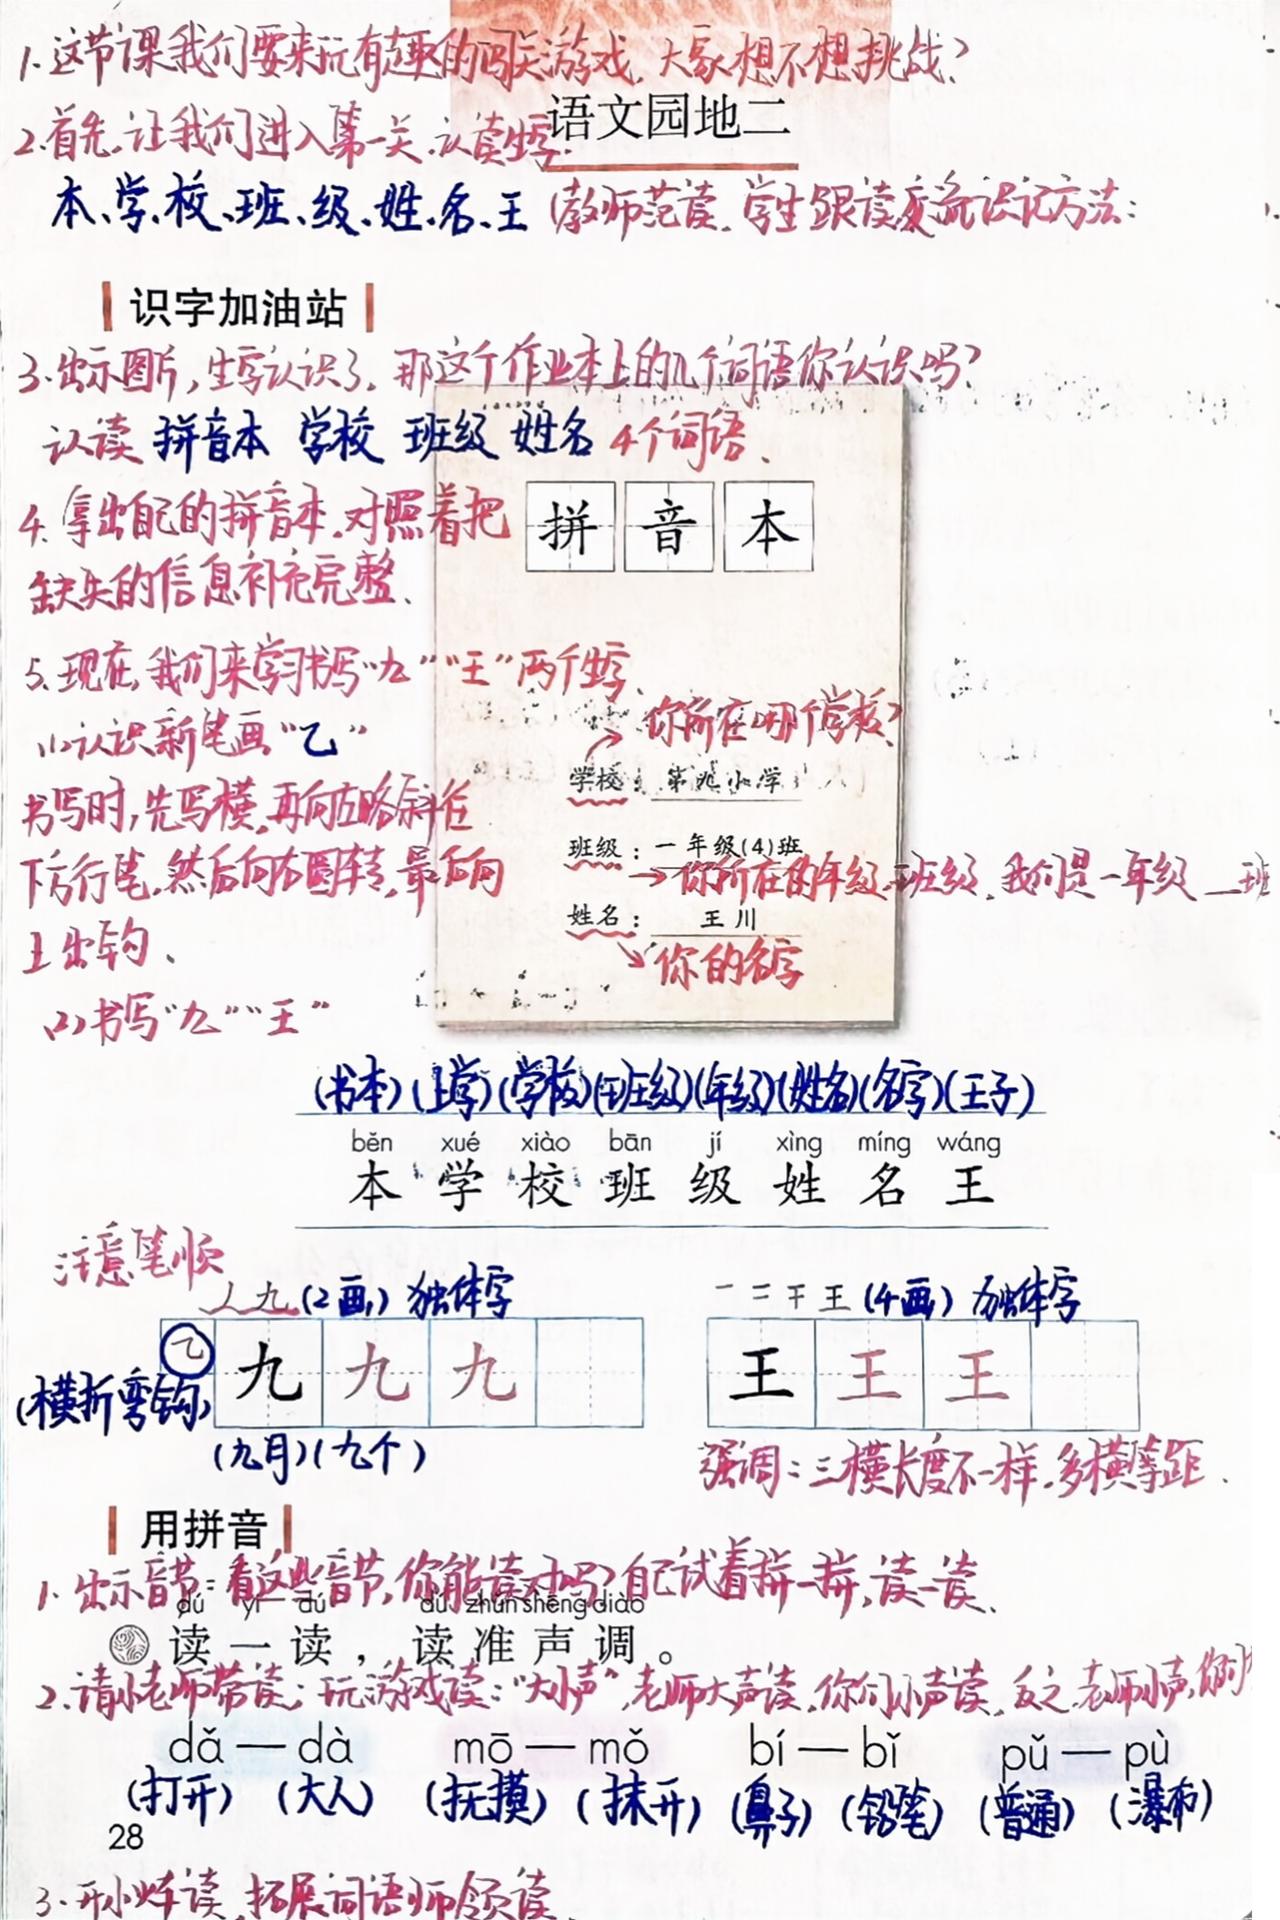 1.这节课我们要来玩有趣的闯关游戏,大家想不想挑战?
语文园地二
2.首先,让我们进入第一关,认读生字.
本、学、校、班、级、姓、名、王(教师范读,学生跟读交流识记方法:
识字加油站
3.出示图片,生字认识了,那这个作业本上的几个词语你认识吗?
认读 拼音本 学校 班级 姓名 4个词语、
4.拿出自己的拼音本,对照着把
缺失的信息补充完整、
拼音本
5.现在,我们来学习书写"九""王"两个生字、
(1)认识新笔画"乙"
你所在哪个学校?
学校:第九小学
书写时,先写横,再向左略斜往
班级:一年级(4)班
下方行笔,然后向右圆转,最后向
→你所在的年级、班级、我们是一年级__班
上出钩、
姓名:王川
你的名字
(2)书写"九""王"
(书本)(上学)(学校)(班级)(年级)(姓名)(名字)(王子)
běn xué xiào bān jí xìng míng wáng
本 学 校 班 级 姓 名 王
注意笔顺
丿九(2画) 独体字
一 二 干 王(4画) 独体字
乙 九 九 九
王 王 王
(横折弯钩)
(九月)(九个)
强调:三横长度不一样,多横等距.
用拼音
1.出示音节:看这些音节,你能读对吗?自己试着拼一拼,读一读、
dú yi dú dú zhǔn shēng diào
读一读,读准声调。
2.请小老师带读;玩游戏读:"大小声",老师大声读,你们小声读,反之,老师小声,你们
dǎ — dà mō — mǒ bí — bǐ pǔ — pù
(打开) (大人) (抚摸) (抹开) (鼻子) (铅笔) (普通) (瀑布)
28
3.开小火车读,拓展词语师领读、